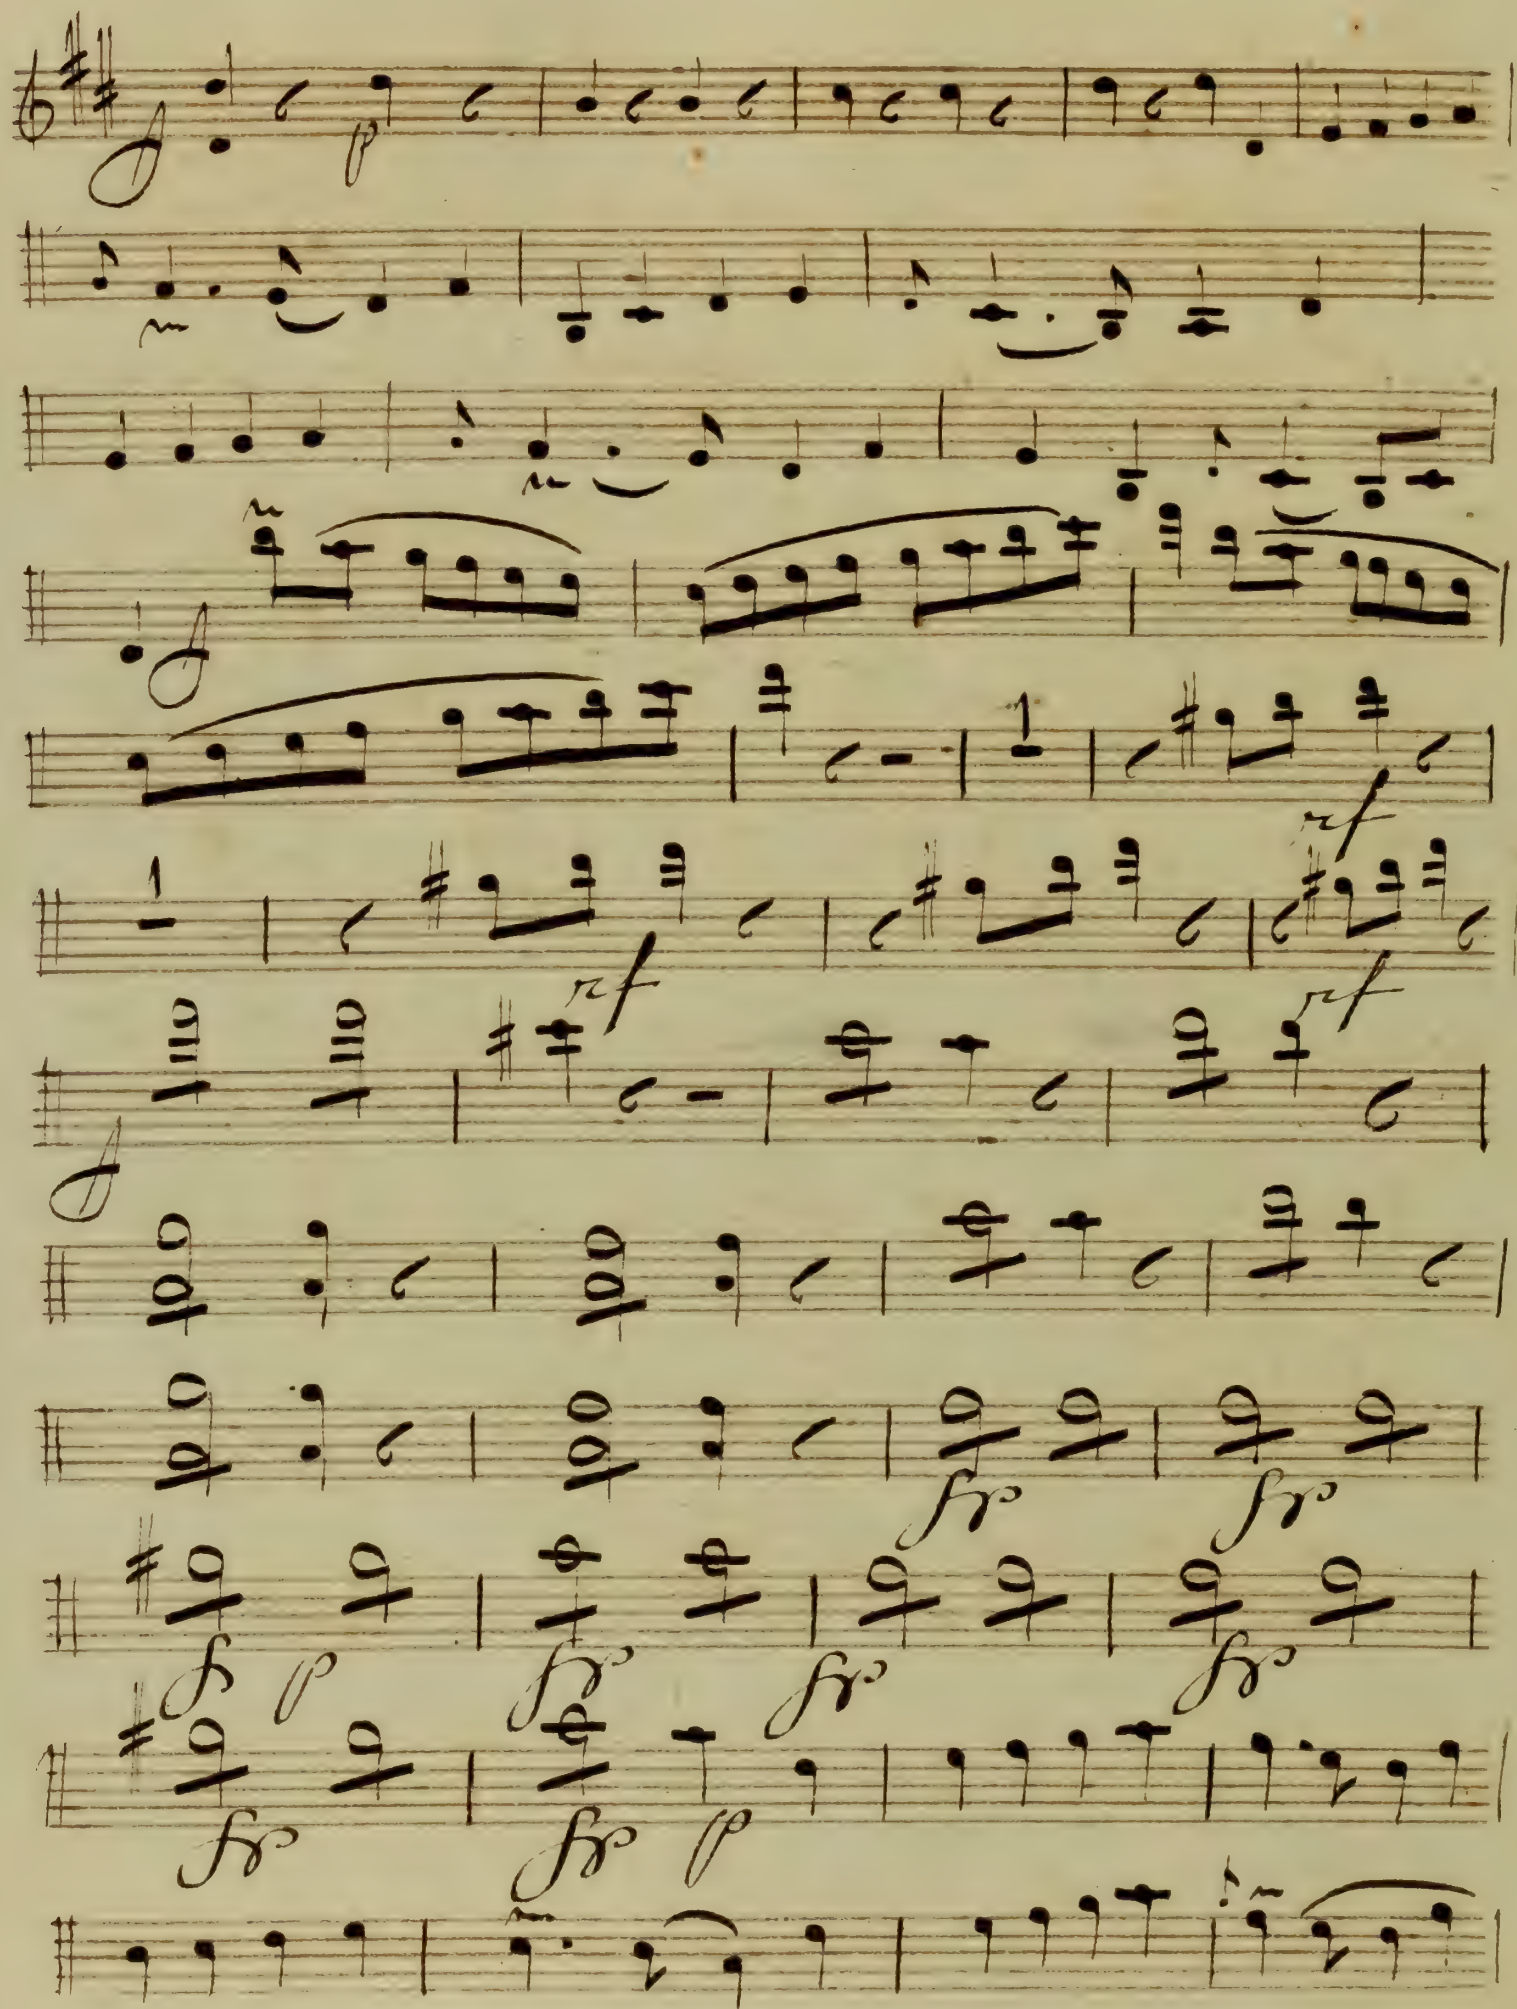 f p
1
rf
1
rf rf
f
fp fp
f p fp fp fp
fp fp p